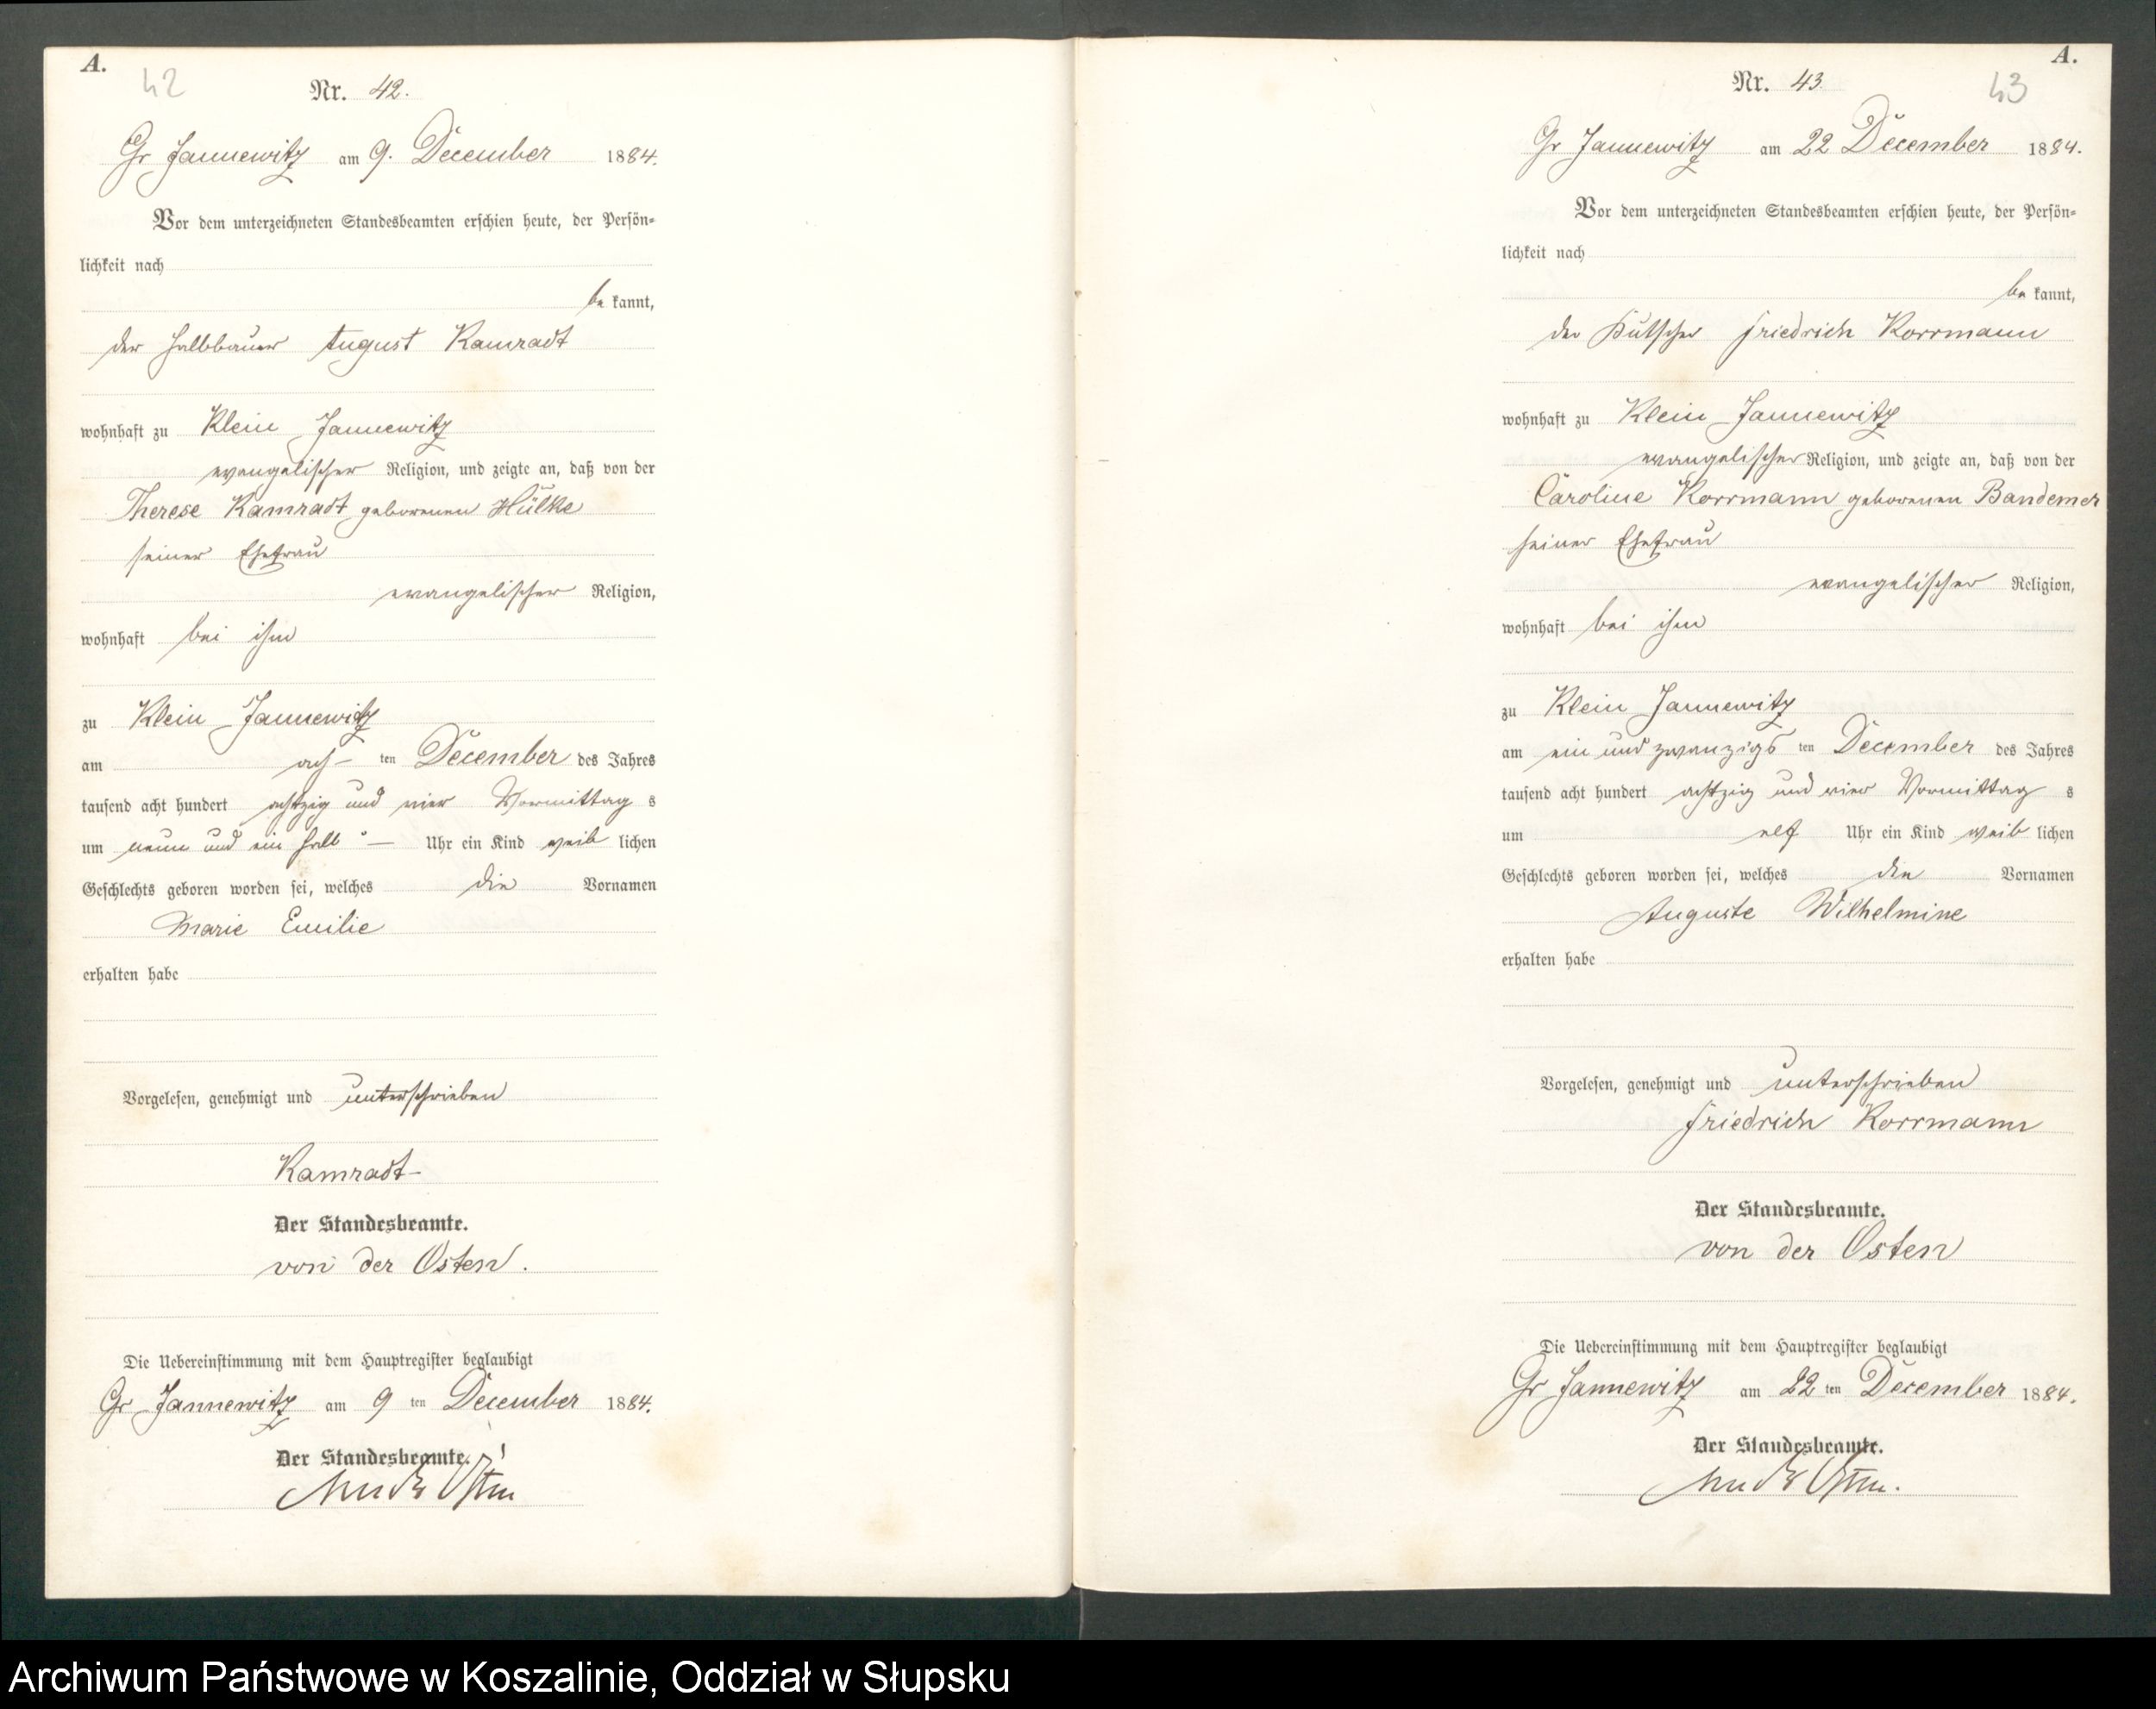 A.
42
Nr. 42.
Gr Jannewitz am 9. December 1884.
Vor dem unterzeichneten Standesbeamten erschien heute, der Persön-
lichkeit nach
be kannt,
der Halbbauer August Kamradt
wohnhaft zu Klein Jannewitz
evangelischer Religion, und zeigte an, daß von der
Therese Kamradt geborenen Hülke
seiner Ehefrau
evangelischer Religion,
wohnhaft bei ihm
zu Klein Jannewitz
am ach- ten December des Jahres
tausend acht hundert achtzig und vier Vormittag s
um neun und ein halb Uhr ein Kind weib lichen
Geschlechts geboren worden sei, welches die Vornamen
Marie Emilie
erhalten habe
Vorgelesen, genehmigt und unterschrieben
Kamradt
Der Standesbeamte.
von der Osten.
Die Uebereinstimmung mit dem Hauptregister beglaubigt
Gr Jannewitz am 9 ten December 1884.
Der Standesbeamte.
von der Osten
A.
43
Nr. 43.
Gr Jannewitz am 22 December 1884.
Vor dem unterzeichneten Standesbeamten erschien heute, der Persön-
lichkeit nach
be kannt,
der Kutscher Friedrich Korrmann
wohnhaft zu Klein Jannewitz
evangelischer Religion, und zeigte an, daß von der
Caroline Korrmann geborenen Bandemer
seiner Ehefrau
evangelischer Religion,
wohnhaft bei ihm
zu Klein Jannewitz
am ein und zwanzigs ten December des Jahres
tausend acht hundert achtzig und vier Vormittag s
um elf Uhr ein Kind weib lichen
Geschlechts geboren worden sei, welches die Vornamen
Auguste Wilhelmine
erhalten habe
Vorgelesen, genehmigt und unterschrieben
Friedrich Korrmann
Der Standesbeamte.
von der Osten
Die Uebereinstimmung mit dem Hauptregister beglaubigt
Gr Jannewitz am 22 ten December 1884.
Der Standesbeamte.
von der Osten.
Archiwum Państwowe w Koszalinie, Oddział w Słupsku